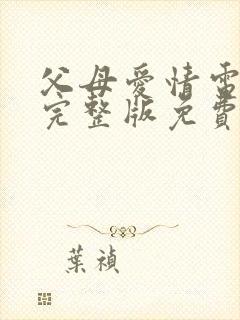 父母愛情電
完整版免費
葉禎